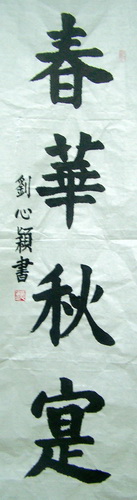 春華秋寔
劉心穎書